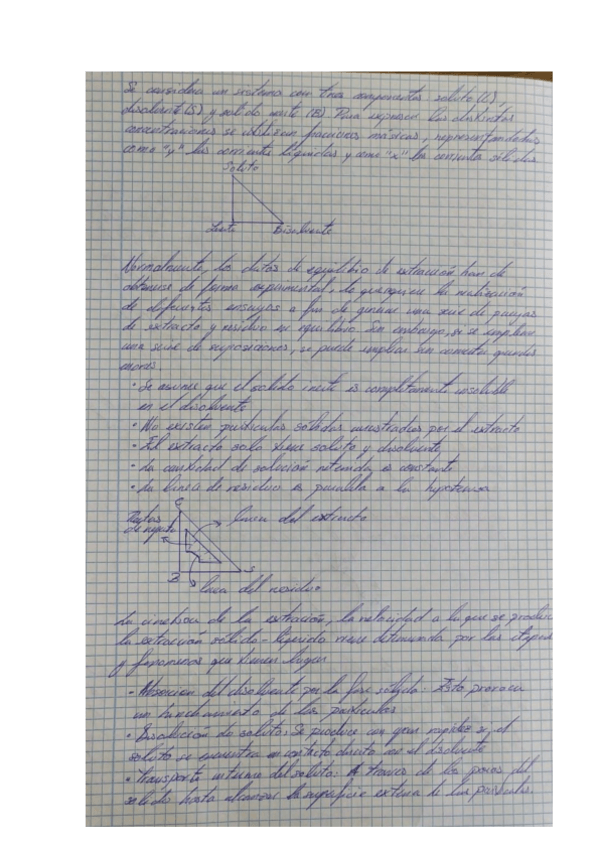 Se considera un sistema con tres componentes soluto (C),
disolvente (S) y solido inerte (B). Para expresar las distintas
concentraciones se utilizan fracciones másicas, representandolas
como "y" las corrientes líquidas y como "x" las corrientes sólidas
Soluto
Inerte Disolvente
Normalmente, los datos de equilibrio de extracción han de
obtenerse de forma experimental, lo que requiere la realización
de diferentes ensayos a fin de generar una serie de parejas
de extracto y residuo en equilibrio. Sin embargo, si se emplean
una serie de suposiciones, se puede emplear sin cometer grandes
errores
• Se asume que el solido inerte es completamente insoluble
en el disolvente
• No existen partículas sólidas arrastradas por el extracto
• El extracto solo tiene soluto y disolvente
• La cantidad de solución retenida es constante
• La linea de residuo es paralela a la hipotenusa
C
Rectas linea del extracto
de reparto
B S
linea del residuo
La cinética de la extración, la velocidad a la que se produce
la extracción sólido-líquido viene determinada por las etapas
y fenómenos que tienen lugar
• Absorcion del disolvente por la fase sólida: Esto provoca
un hinchamiento de las partículas
• Disolución de soluto: Se produce con gran rapidez si el
soluto se encuentra en contacto directo con el disolvente
• Transporte interno del soluto: A traves de los poros del
solido hasta alcanzar la superficie externa de las partículas.